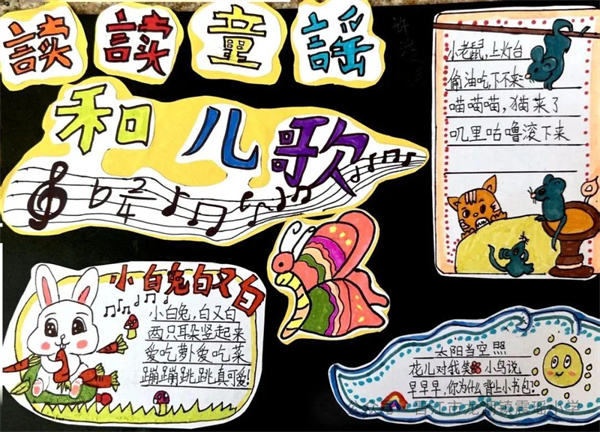 读读童谣
和儿歌
2
4
小老鼠,上灯台
偷油吃,下不来
喵喵喵,猫来了
叽里咕噜滚下来
小白兔白又白
小白兔,白又白
两只耳朵竖起来
爱吃萝卜爱吃菜
蹦蹦跳跳真可爱!
太阳当空照
花儿对我笑 小鸟说
早早早,你为什么背上小书包?